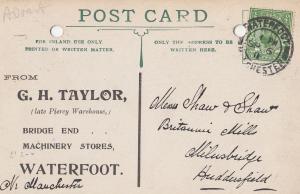 Advert
POST CARD
FOR INLAND USE ONLY
PRINTED OR WRITTEN MATTER.
ONLY THE ADDRESS TO BE
WRITTEN HERE.
FROM
G. H. TAYLOR,
(late Piercy Warehouse,)
BRIDGE END
MACHINERY STORES,
WATERFOOT.
Nr Manchester
Messrs Shaw & Shaw
Britannia Mills
Milnsbridge
Huddersfield
WATERFOOT